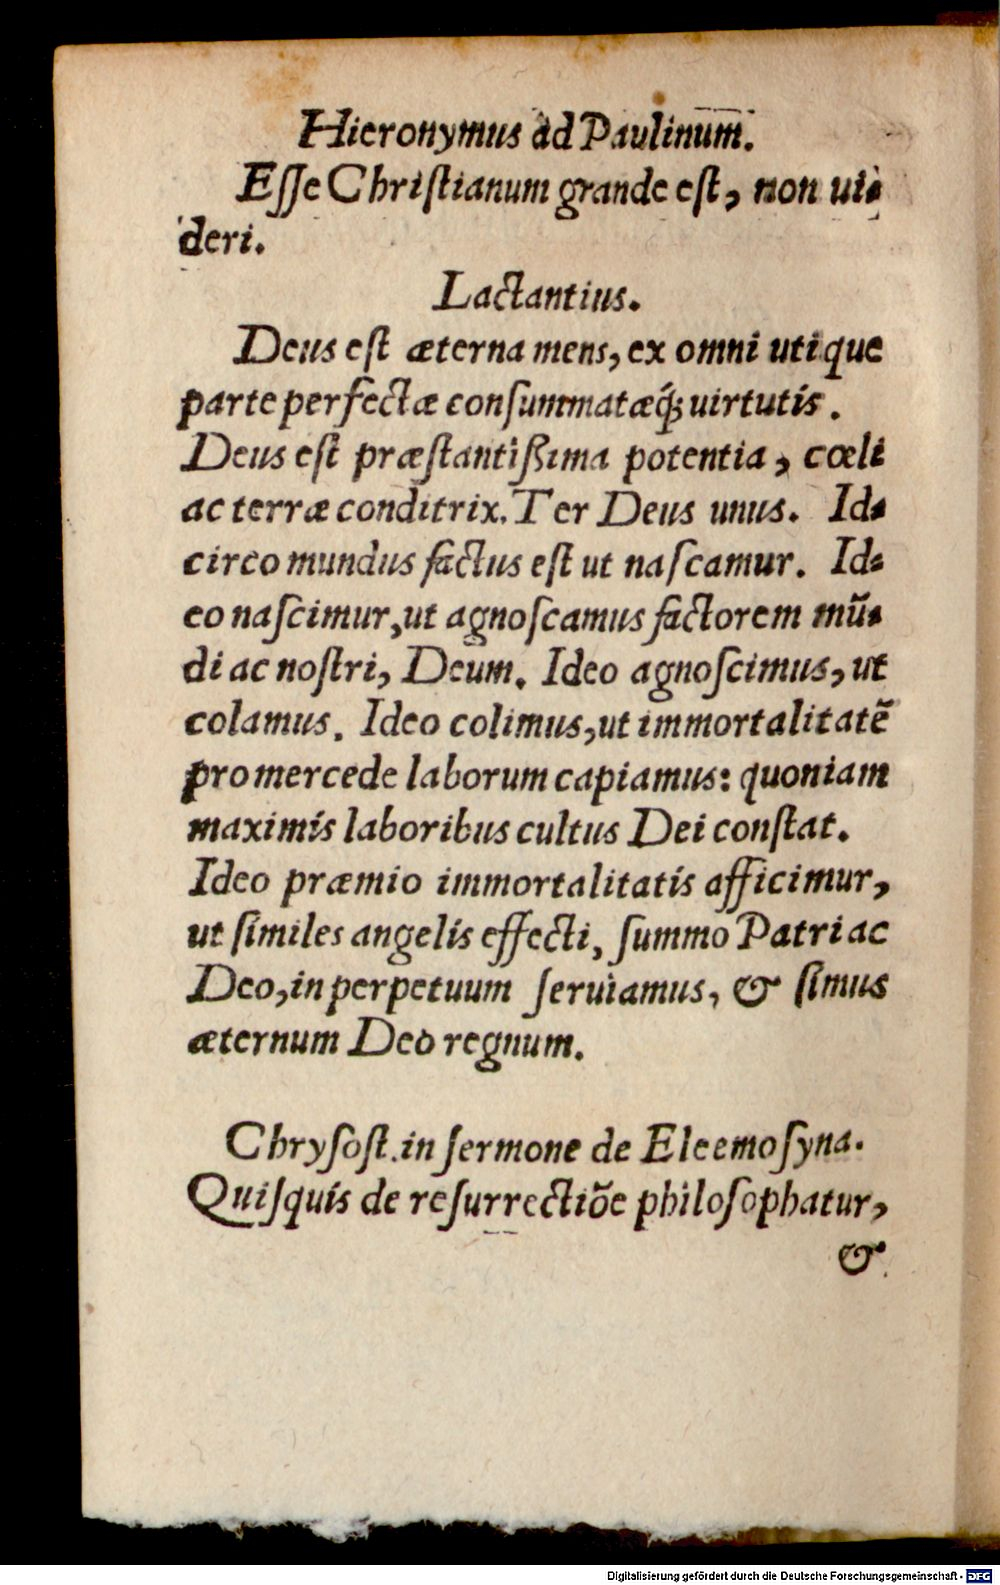 Hieronymus ad Paulinum.
Eſſe Chriſtianum grande eſt, non ui-
deri.
Lactantius.
Deus eſt æterna mens, ex omni utique
parte perfectæ conſummatæq́; uirtutis.
Deus eſt præſtantißima potentia, cœli
ac terræ conditrix. Ter Deus unus. Id-
circo mundus factus eſt ut naſcamur. Id-
eo naſcimur, ut agnoſcamus factorem mũ-
di ac noſtri, Deum. Ideo agnoſcimus, ut
colamus. Ideo colimus, ut immortalitatẽ
pro mercede laborum capiamus: quoniam
maximis laboribus cultus Dei conſtat.
Ideo præmio immortalitatis afficimur,
ut ſimiles angelis effecti, ſummo Patri ac
Deo, in perpetuum ſeruiamus, & ſimus
æternum Deo regnum.
Chryſoſt. in ſermone de Eleemoſyna.
Quiſquis de reſurrectiõe philoſophatur,
&
Digitalisierung gefördert durch die Deutsche Forschungsgemeinschaft - DFG